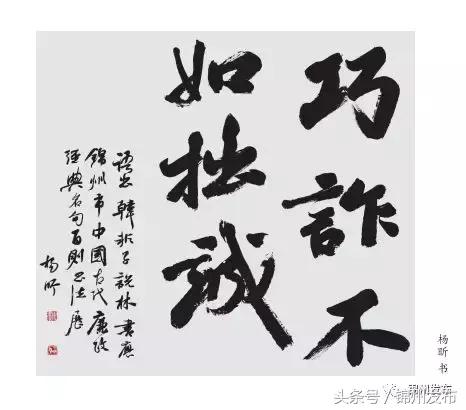 巧詐不
如拙誠
語出韓非子說林書應
錦州市中國古代廉政
經典名句百則書法展
楊昕
杨昕 书
锦州发布
头条号 / 锦州发布